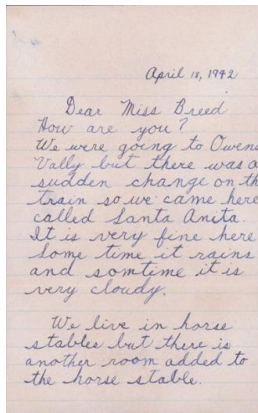 April 18, 1942
Dear Miss Breed
How are you?
We were going to Owens
Vally but there was a
sudden change on th
train so we came here
called Santa Anita.
It is very fine here
Some time it rains
and somtime it is
very cloudy.
We live in horse
stables but there is
another room added to
the horse stable.